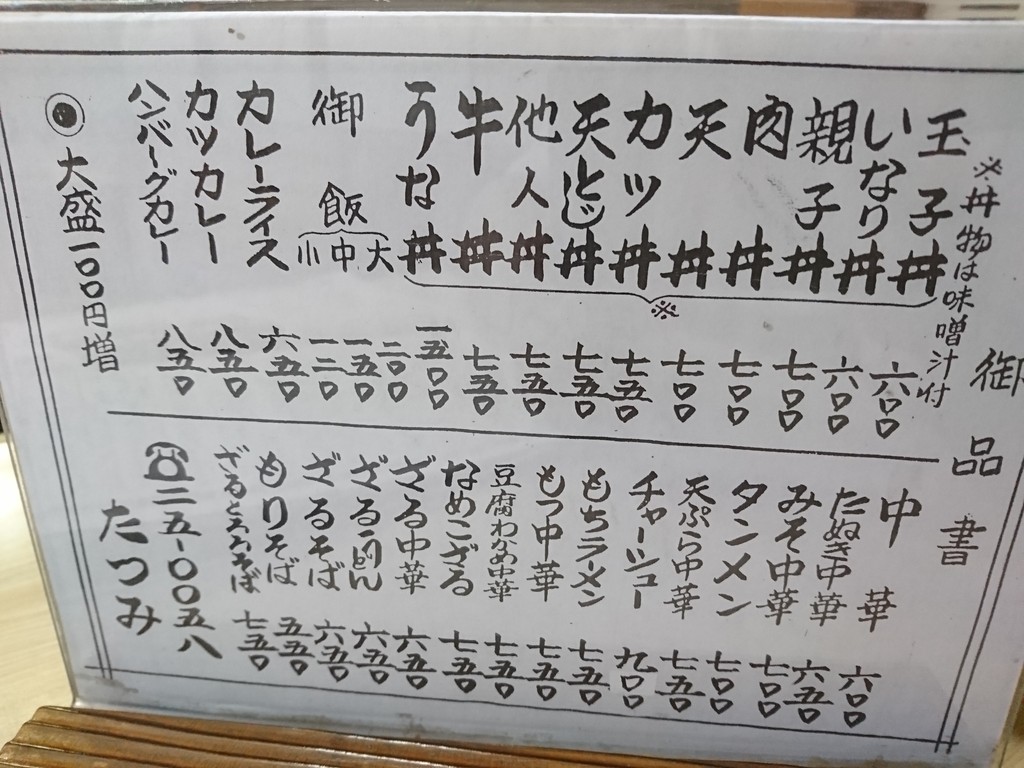 御品書
※丼物は味噌汁付
玉子丼 六〇〇
いなり丼 六〇〇
親子丼 七〇〇
肉丼 七〇〇
天丼 七〇〇
カツ丼 七五〇
天とじ丼 七五〇
他人丼 七五〇
牛丼 七五〇
うな丼 一五〇〇
※
御飯 大 二〇〇
中 一五〇
小 一二〇
カレーライス 六五〇
カツカレー 八五〇
ハンバーグカレー 八五〇
◉大盛一〇〇円増
中華 六〇〇
たぬき中華 六五〇
みそ中華 七〇〇
タンメン 七〇〇
天ぷら中華 七五〇
チャーシュー 九〇〇
もちラーメン 七五〇
もつ中華 七五〇
豆腐わかめ中華 七五〇
なめこざる 七五〇
ざる中華 六五〇
ざるうどん 六五〇
ざるそば 六五〇
もりそば 五五〇
ざるとろろそば 七五〇
☎二五-〇〇五八
たつみ